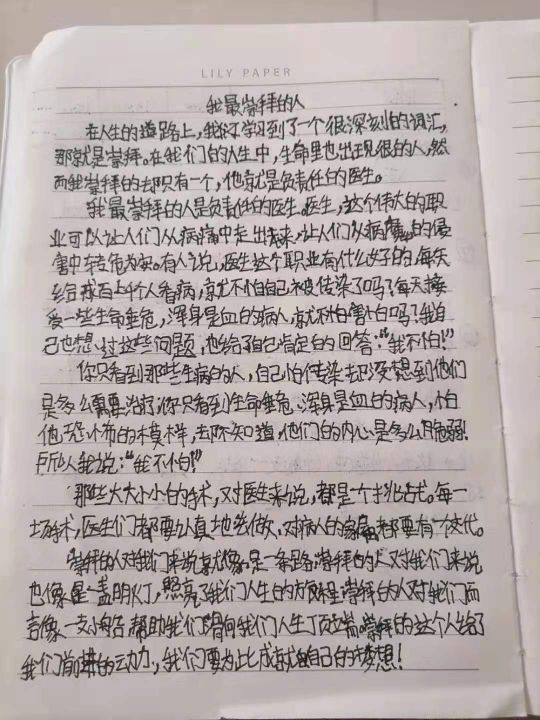 LILY PAPER
我最崇拜的人
在人生的道路上,我们学习到了一个很深刻的词汇,
那就是崇拜。在我们的人生中,生命里也出现很的人,然
而我崇拜的却只有一个,他就是负责任的医生。
我最崇拜的人是负责任的医生。医生,这个伟大的职
业可以让人们从病痛中走出来,让人们从病魔的侵
害中转危为安。有人说,医生这个职业有什么好的,每天
给成百上千人看病,就不怕自己被传染了吗?每天接
受一些生命垂危,浑身是血的病人,就不怕害怕吗?我自
己也想过这些问题,也给了自己肯定的回答:“我不怕!”
你只看到那些生病的人,自己怕传染却没想到他们
是多么需要治疗;你只看到生命垂危、浑身是血的病人,怕
他恐怖的模样,却不知道,他们的内心是多么脆弱!
所以我说:“我不怕!”
那些大大小小的手术,对医生来说,都是一个挑战。每一
场手术,医生们都要认真地去做,对病人的家属都要有个交代。
崇拜的人对我们来说就像是一条路,崇拜的人对我们来说
也像是一盏明灯,照亮了我们人生的方向;崇拜的人对我们而
言像一支小船,帮助我们滑向我们人生的巅端。崇拜的这个人给了
我们前进的动力,我们要为此成就自己的梦想!